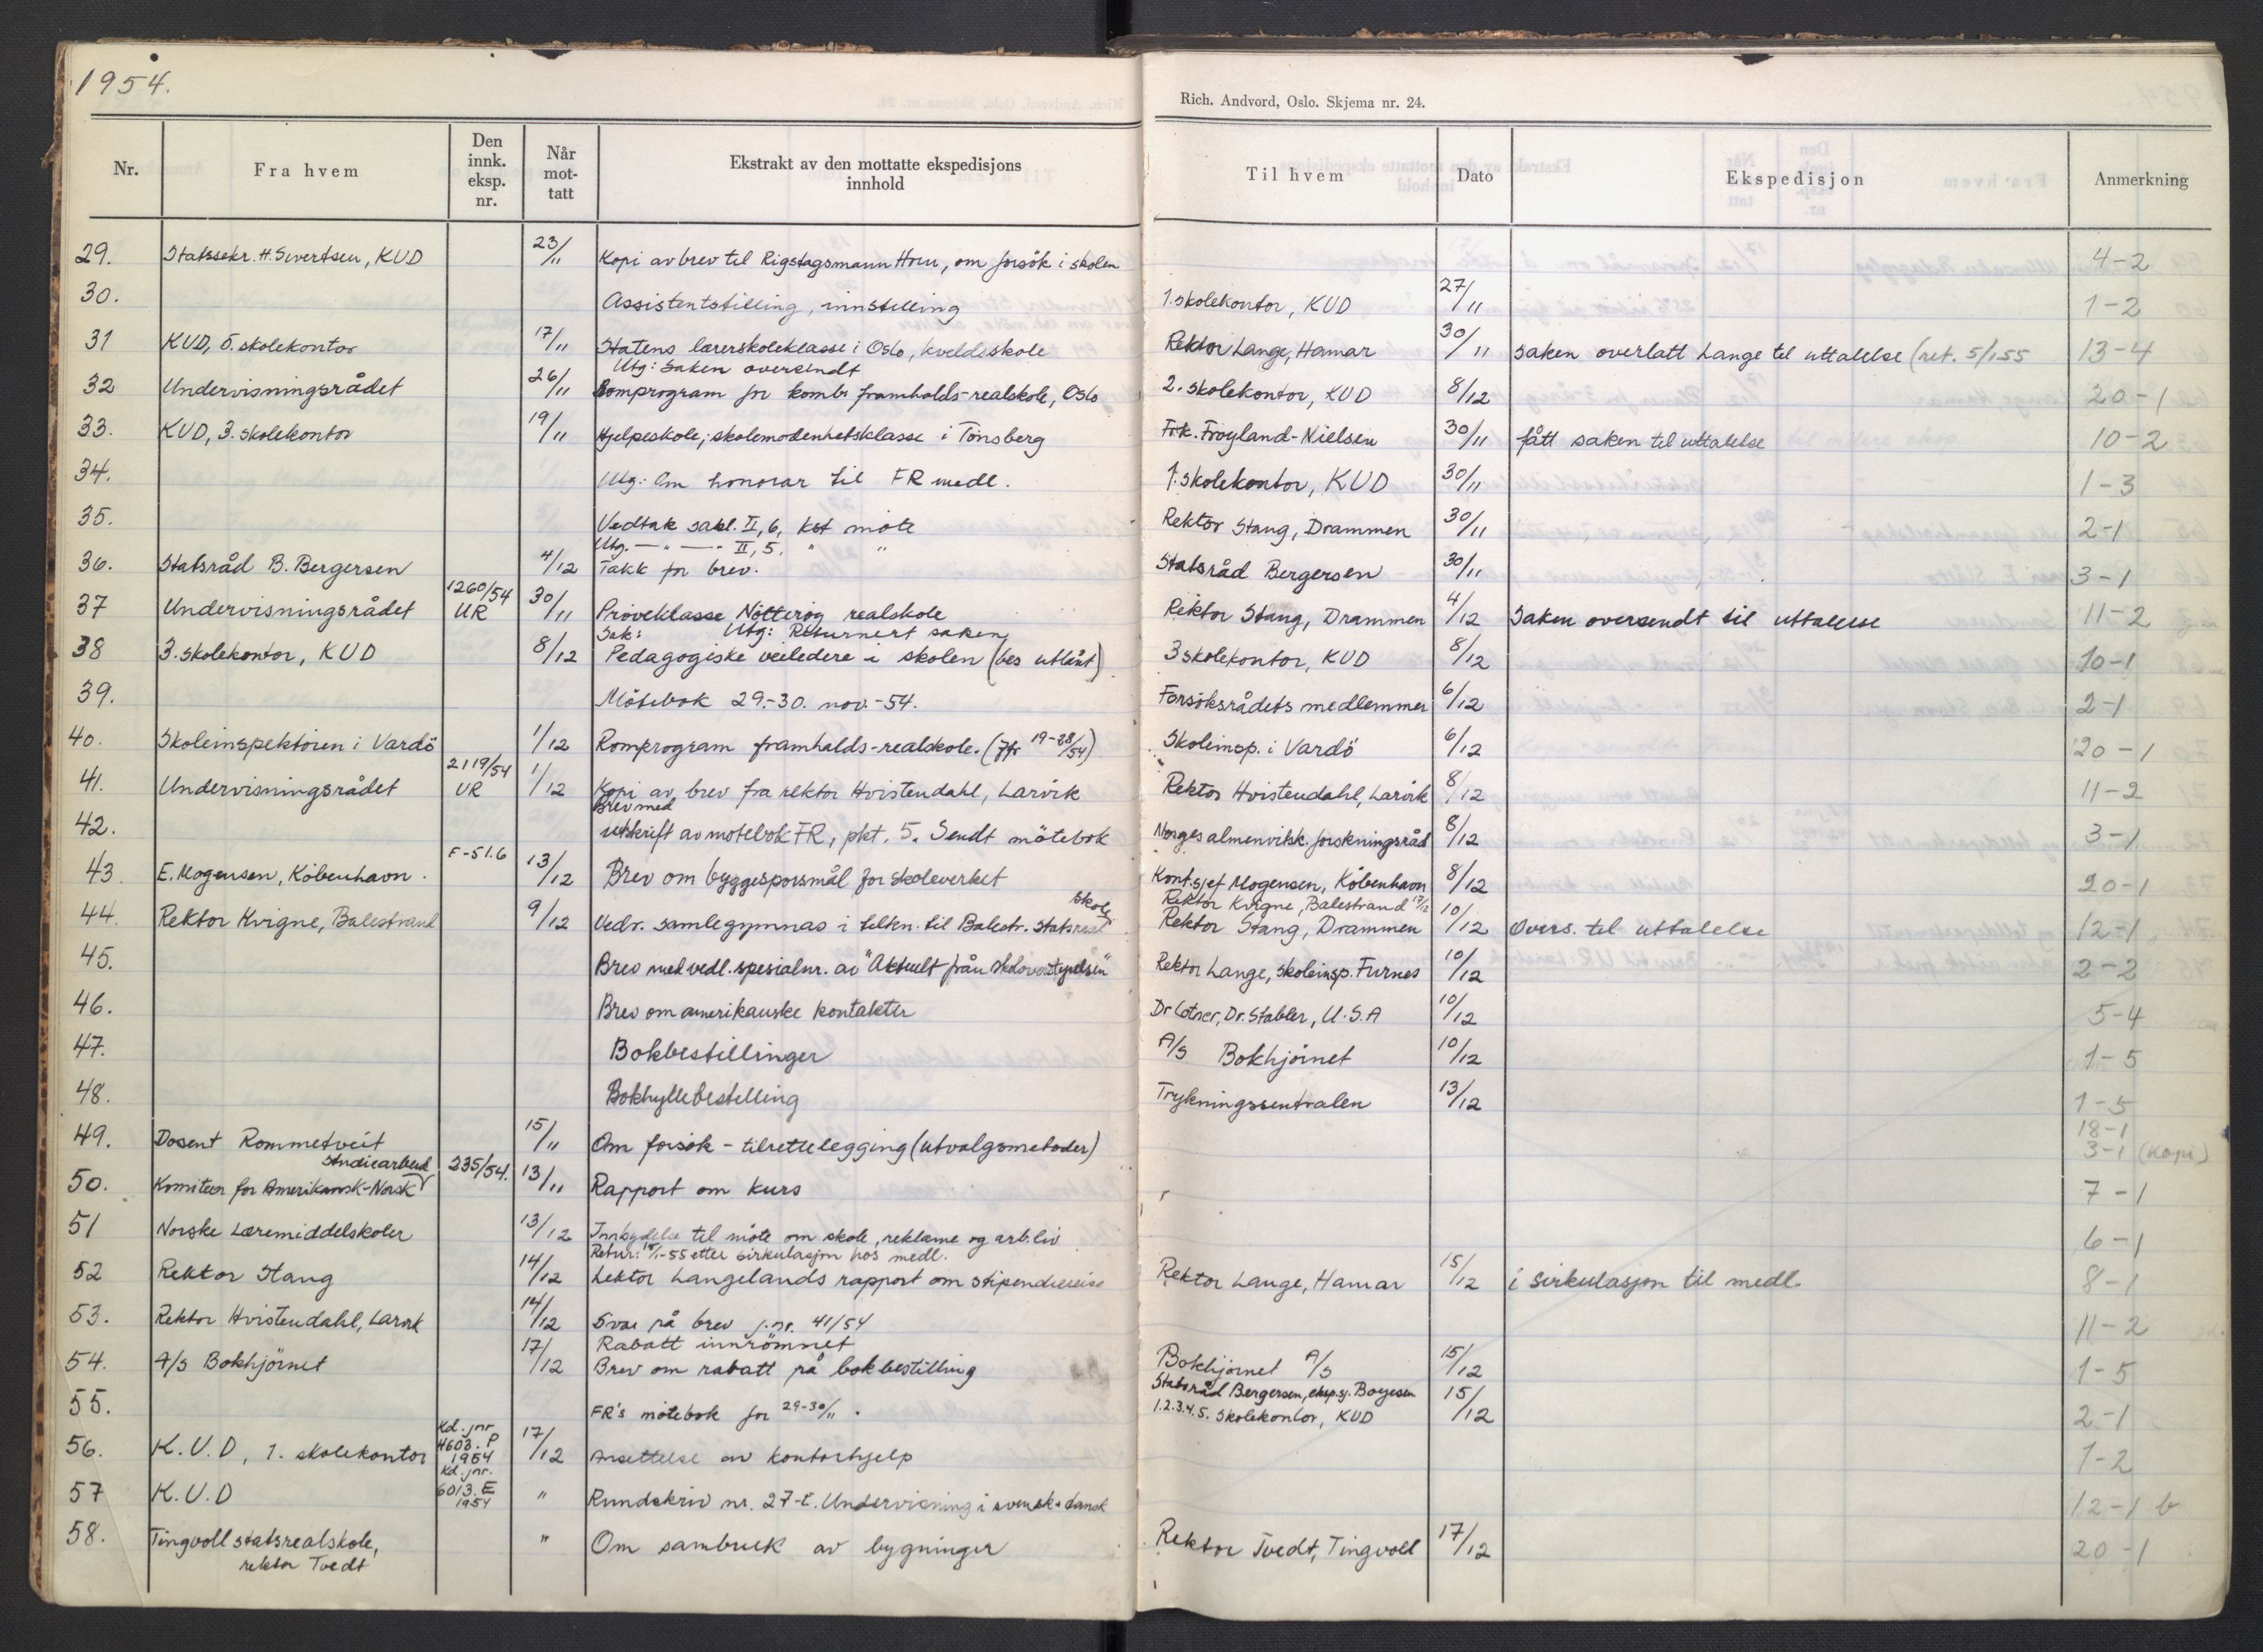 1954.
Rich. Andvord, Oslo. Skjema nr. 24.
Nr. Fra hvem Den innk. eksp. nr. Når mot-tatt Ekstrakt av den mottatte ekspedisjons innhold Til hvem Dato Ekspedisjon Anmerkning
29. Statssekr. H. Sivertsen, KUD 23/11 Kopi av brev til Rigstagsmann Horn, om forsök i skolen 4-2
30. Assistentstilling, innstilling 1. skolekontor, KUD 27/11 1-2
31 KUD, 5. skolekontor 17/11 Statens lærerskoleklasse i Oslo, kveldsskole Rektor Lange, Hamar 30/11 saken overlatt Lange til uttalelse (ret. 5/1-55 13-4
Utg: Saken oversendt
32 Undervisningsrådet 26/11 Romprogram for komb. framhalds-realskole, Oslo 2. skolekontor, KUD 8/12 20-1
33. KUD, 3. skolekontor 19/11 Hjelpeskole; skolemodenhetsklasse i Tönsberg Frk. Frøyland-Nielsen 30/11 fått saken til uttalelse 10-2
34. Utg: Om honorar til FR medl. 1. skolekontor, KUD 30/11 1-3
35. Vedtak sakl. II, 6, møte Rektor Stang, Drammen 30/11 2-1
Utg. — " — " II, 5, " "
36. Statsråd B. Bergersen 4/12 Takk for brev. Statsråd Bergersen 30/11 3-1
37 Undervisningsrådet 1260/54 UR 30/11 Pröveklasse Nötteröy realskole Rektor Stang, Drammen 4/12 Saken oversendt til uttalelse 11-2
Sak: Utg: Returnert saken
38 3. skolekontor, KUD 8/12 Pedagogiske veiledere i skolen (bes utlånt) 3 skolekontor, KUD 8/12 10-1
39. Mötebok 29.-30. nov.-54. Forsöksrådets medlemmer 6/12 2-1
40. Skoleinspektören i Vardö 1/12 Romprogram framhalds-realskole. (Jfr 19-28/54) Skoleinsp. i Vardö 6/12 20-1
41. Undervisningsrådet 2119/54 UR 1/12 Kopi av brev fra rektor Hvistendahl, Larvik Rektor Hvistendahl, Larvik 8/12 11-2
Brev med
42. utskrift av motebok FR, pkt. 5. Sendt mötebok Norges almenvitsk. forskningsråd 8/12 3-1
43. E. Mogensen, Köbenhavn. F-51.6 13/12 Brev om byggespörsmål for skoleverket Kont.sjef Mogensen, Köbenhavn 8/12 20-1
Rektor Kvigne, Balestrand 17/12
44. Rektor Kvigne, Balestrand 9/12 Vedr. samlegymnas i tilkn. til Balestr. statsreal skole Rektor Stang, Drammen 10/12 Overs. til uttalelse 12-1
45. Brev med vedl. spesialnr. av "Aktuelt från skolöverstyrelsen" Rektor Lange, skoleinsp. Furnes 10/12 2-2
46. Brev om amerikanske kontakter Dr Cotner, Dr. Stabler, U.S.A 10/12 5-4
47. Bokbestillinger A/S Bokhjörnet 10/12 1-5
48. Bokhyllebestilling Trykningssentralen 13/12 1-5
49. Dosent Rommetveit 15/11 Om forsök - tilrettelegging (utvalgsmetoder) 18-1
3-1 (kopi)
50. Komiteen for Amerikansk-Norsk Studiearbeid 235/54. 13/11 Rapport om kurs 7-1
51 Norske Læremiddelskoler 13/12 Innbydelse til möte om skole, reklame og arb.liv 6-1
Retur: 18/1-55 etter sirkulasjon hos medl.
52 Rektor Stang 14/12 Lektor Langelands rapport om stipendiereise Rektor Lange, Hamar 15/12 i sirkulasjon til medl. 8-1
53. Rektor Hvistendahl, Larvik 14/12 Svar på brev j.nr. 41/54 11-2
Rabatt innrömmet
54. A/S Bokhjörnet 17/12 Brev om rabatt på bokbestilling Bokhjörnet A/S 15/12 1-5
55. FR's mötebok for 29-30/11. Statsråd Bergersen, eksp.sj. Boyesen 15/12 2-1
1.2.3.4.5. skolekontor, KUD
56. K.U.D, 1. skolekontor Kd. jnr. 4603. P 1954 17/12 Ansettelse av kontorhjelp 1-2
57 K.U.D Kd. jnr. 6013. E 1954 " Rundskriv nr. 27-E. Undervisning i svensk + dansk 12-1 b
58. Tingvoll statsrealskole, " Om sambruk av bygninger Rektor Tvedt, Tingvoll 17/12 20-1
rektor Tvedt